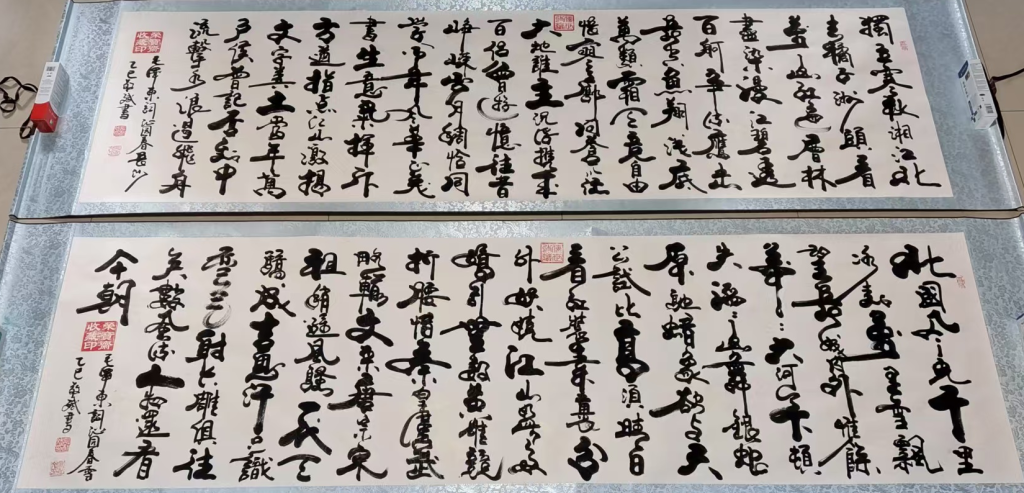 獨立寒秋湘江北
去橘子洲頭看
萬山紅遍層林
盡染漫江碧透
百舸爭流鷹击
長空魚翔淺底
萬類霜天竞自由
悵寥廓問蒼茫
大地誰主沉浮携来
百侣曾游憶往昔
崢嶸岁月稠恰同
學少年風華正茂
書生意氣揮斥
方遒指点江山激揚
文字糞土當年萬
戶侯曾記否到中
流擊水浪遏飛舟
毛澤東詞沁园春長沙
乙巳 斌書
榮寶齋收藏印
北國風光千里
冰封萬里雪飄
望長城内外惟餘
莽〻大河上下頓
失滔〻山舞銀蛇
原馳蠟象欲與天
公試比高須晴日
看紅裝素裹分
外妖嬈江山如此多
嬌引無數英雄競
折腰惜秦皇漢武
略輸文采唐宗宋
祖稍遜風騷一代天
驕成吉思汗只識
彎弓射大雕俱往
矣數風流人物還看
今朝
榮寶齋收藏印
毛澤東詞沁园春雪
乙巳 斌書